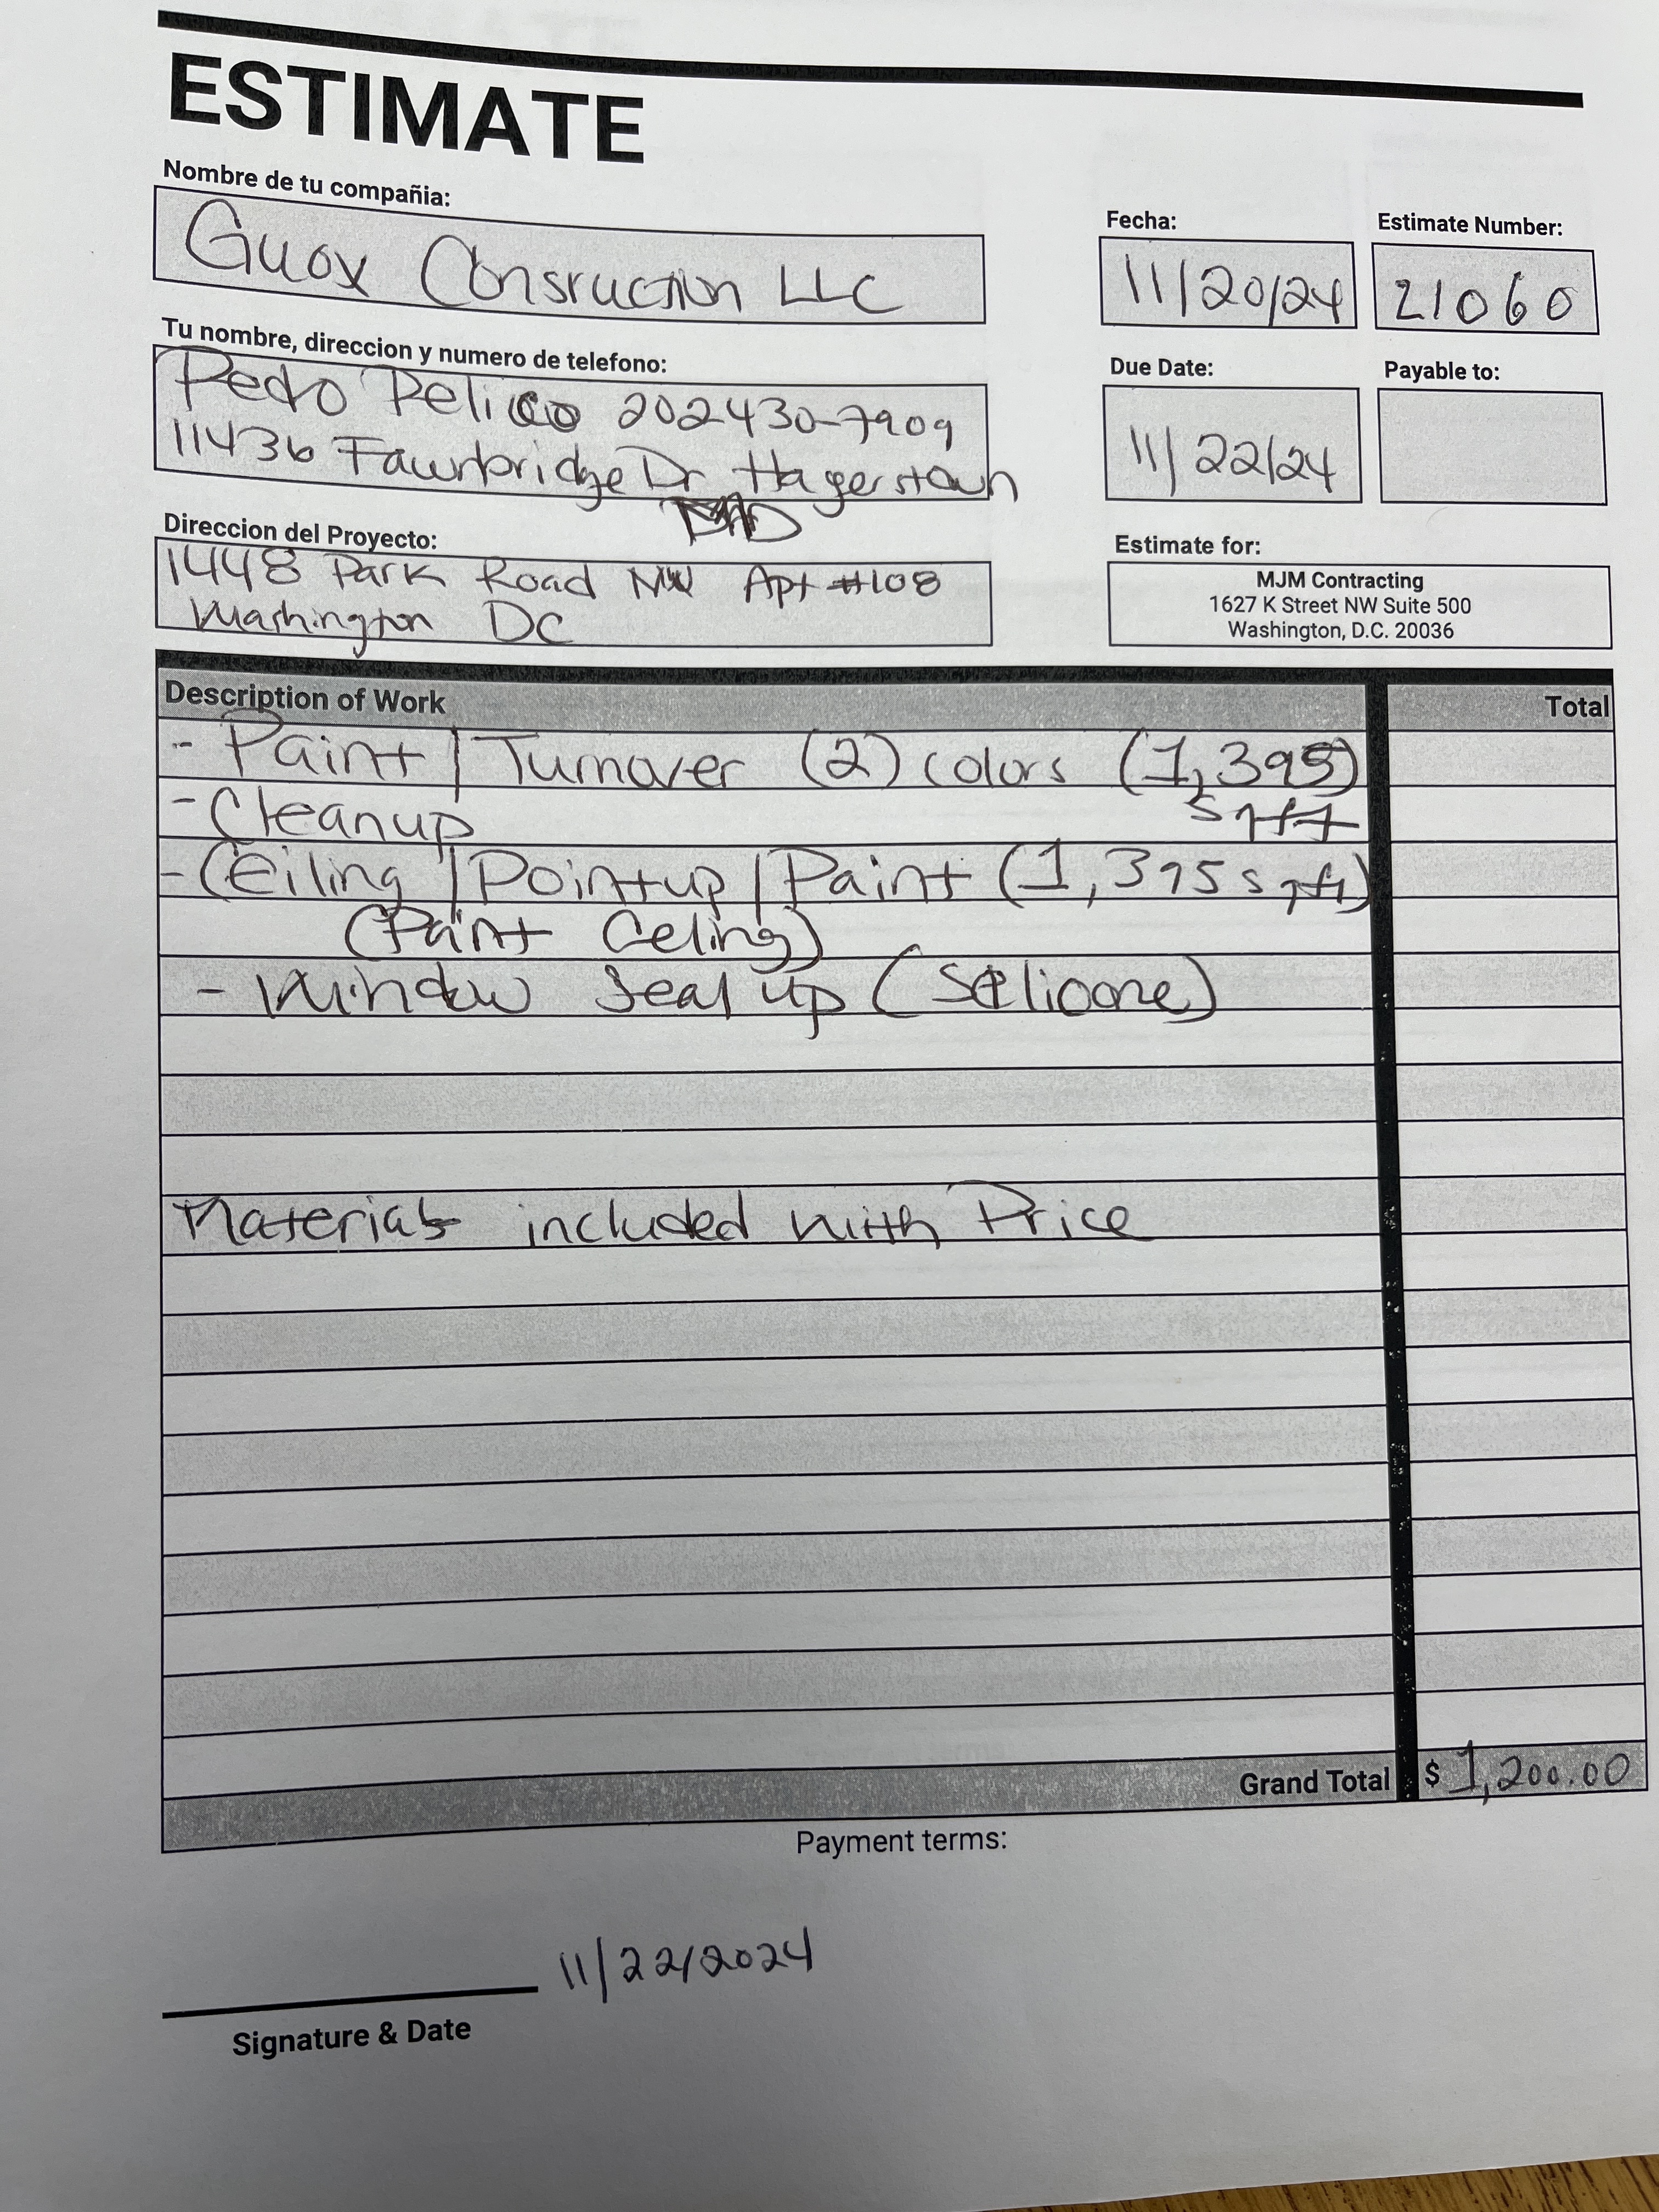 ESTIMATE
Nombre de tu compañia:
Guox Consruction LLC
Fecha:
11/20/24
Estimate Number:
21060
Tu nombre, direccion y numero de telefono:
Pedro Pelico 202430-7909
11436 Fawnbridge Dr Hagerstown
MD
Due Date:
11/22/24
Payable to:
Direccion del Proyecto:
1448 Park Road NW Apt #108
Washington DC
Estimate for:
MJM Contracting
1627 K Street NW Suite 500
Washington, D.C. 20036
Description of Work Total
- Paint / Turnover (2) colors (1,395)
- Cleanup sqft
- Ceiling / Pointup / Paint (1,395 sqft)
(Paint Celing)
- Window Seal up (Selicone)
Materials included with Price
Grand Total $ 1,200.00
Payment terms:
11/22/2024
Signature & Date